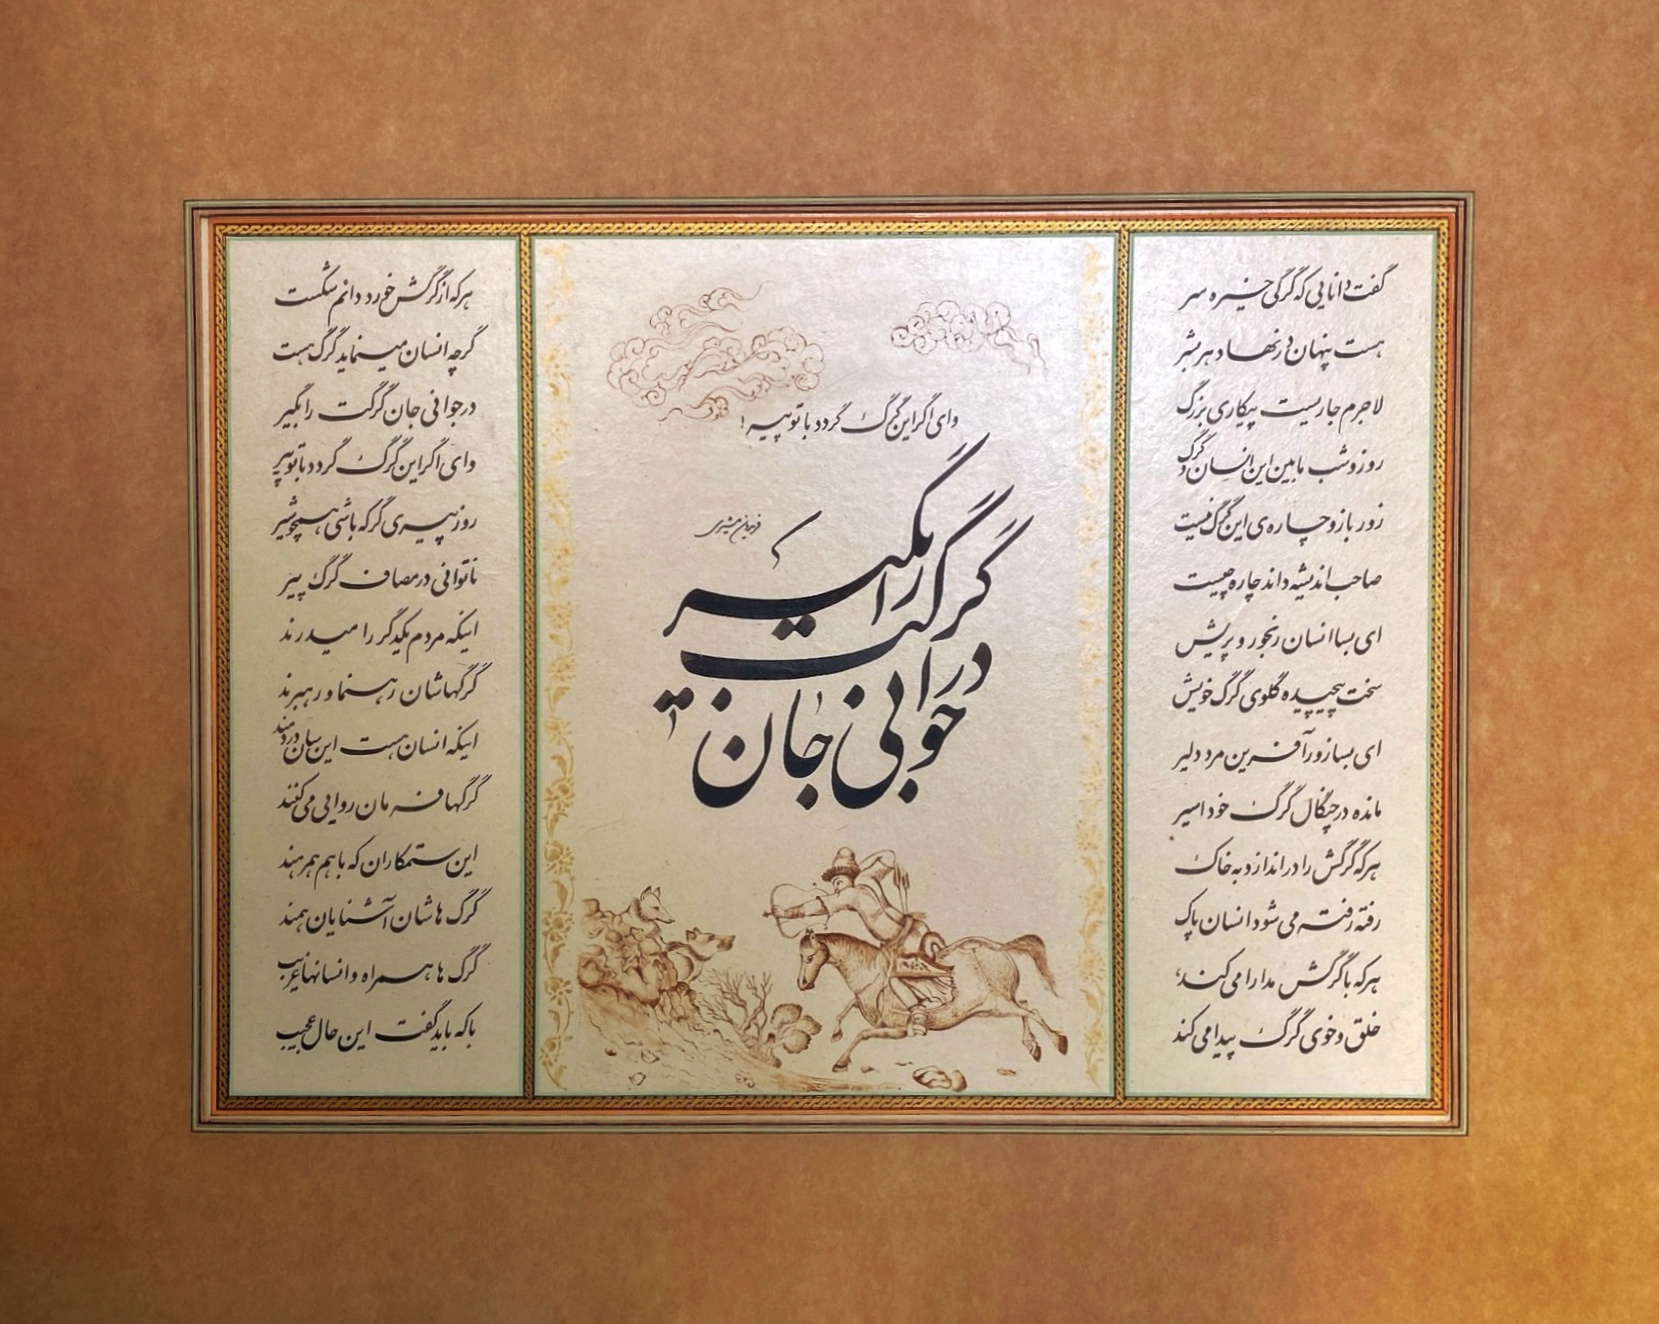 گفت دانایی که گرگی خیره سر
هست پنهان در نهاد هر بشر
لاجرم جاریست پیکاری بزرگ
روز و شب مابین این انسان و گرگ
زور بازو چاره‌ی این گرگ نیست
صاحب اندیشه داند چاره چیست
ای بسا انسان رنجور و پریش
سخت پیچیده گلوی گرگ خویش
ای بسا زور آفرین مرد دلیر
مانده در چنگال گرگ خود اسیر
هر که گرگش را در اندازد به خاک
رفته رفته می شود انسان پاک
هر که با گرگش مدارا می کند
خلق و خوی گرگ پیدا می کند
وای اگر این گرگ گردد با تو پیر!
در جوانی جان گرگت را بگیر
هر که از گرگش خورد دائم شکست
گرچه انسان مینماید گرگ هست
در جوانی جان گرگت را بگیر
وای اگر این گرگ گردد با تو پیر
روز پیری گر که باشی همچو شیر
ناتوانی در مصاف گرگ پیر
اینکه مردم یکدگر را میدرند
گرگهاشان رهنما و رهبرند
اینکه انسان هست این سان دردمند
گرگها فرمان روایی می کنند
این ستمکاران که با هم همرهند
گرگ هاشان آشنایان همند
گرگ ها همراه و انسانها غریب
با که باید گفت این حال عجیب